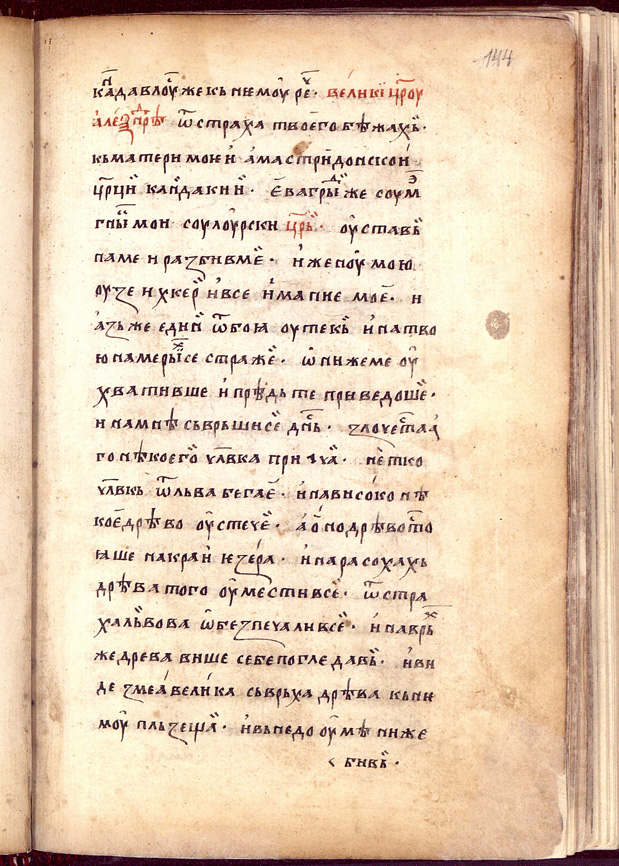 144
каⷩ҇давлоу́ⷤже къ н̾ѥмоу реⷱ҇ · вели́кї цр҃оу
але́ѯаⷩ҇дре ѿ страха твоег̾о бѣжахь ·
къ матери моѥи́ амастри́донскои
цр҃ци каⷩ҇дакиⷩ҇ · ѐвагриⷣ же соуⷨ
гн҃ыи мои соуло́урски цр҃ь · оу̓ставь
на ме и разбивме · и́ же́ноу мою
оузе и хкеⷬ и̓ все и́манїе моѐ · и
азь же едиⷩ ѿ боꙗ оутекь и̓ на тво
ю намерыⷯ се страже · ѡ҆ни же ме оу̓
хватив̾ше и̓ прѣⷣ те приведоше ·
и на мнѣ сьврьши се дн҃ьⷭ · злочеⷭ҇таа
го нѣкоего̀ чл҃вка прич̾ча · нѣтко
чл҃вкь ѿ льва бегаѐ · и̓ на висо́ко нѣ
коѐ дрѣво оу̓стечѐ · а о́но дрѣво сто
ꙗше на краи́ ѥзе́ра · и̓ на расохахь
дрѣва того оу̓мести в̾се · ѿ стра
ха л̾вова ѡ̓безпечали в̾се · и̓ на врьⷯ
же древа више себе погледавь · и̓ ви
де змеа́ вели́ка сь врьха дрѣва кь ни
моу̓ пльзеща · и̓ вь недооу̓мѣни же
бивь ·